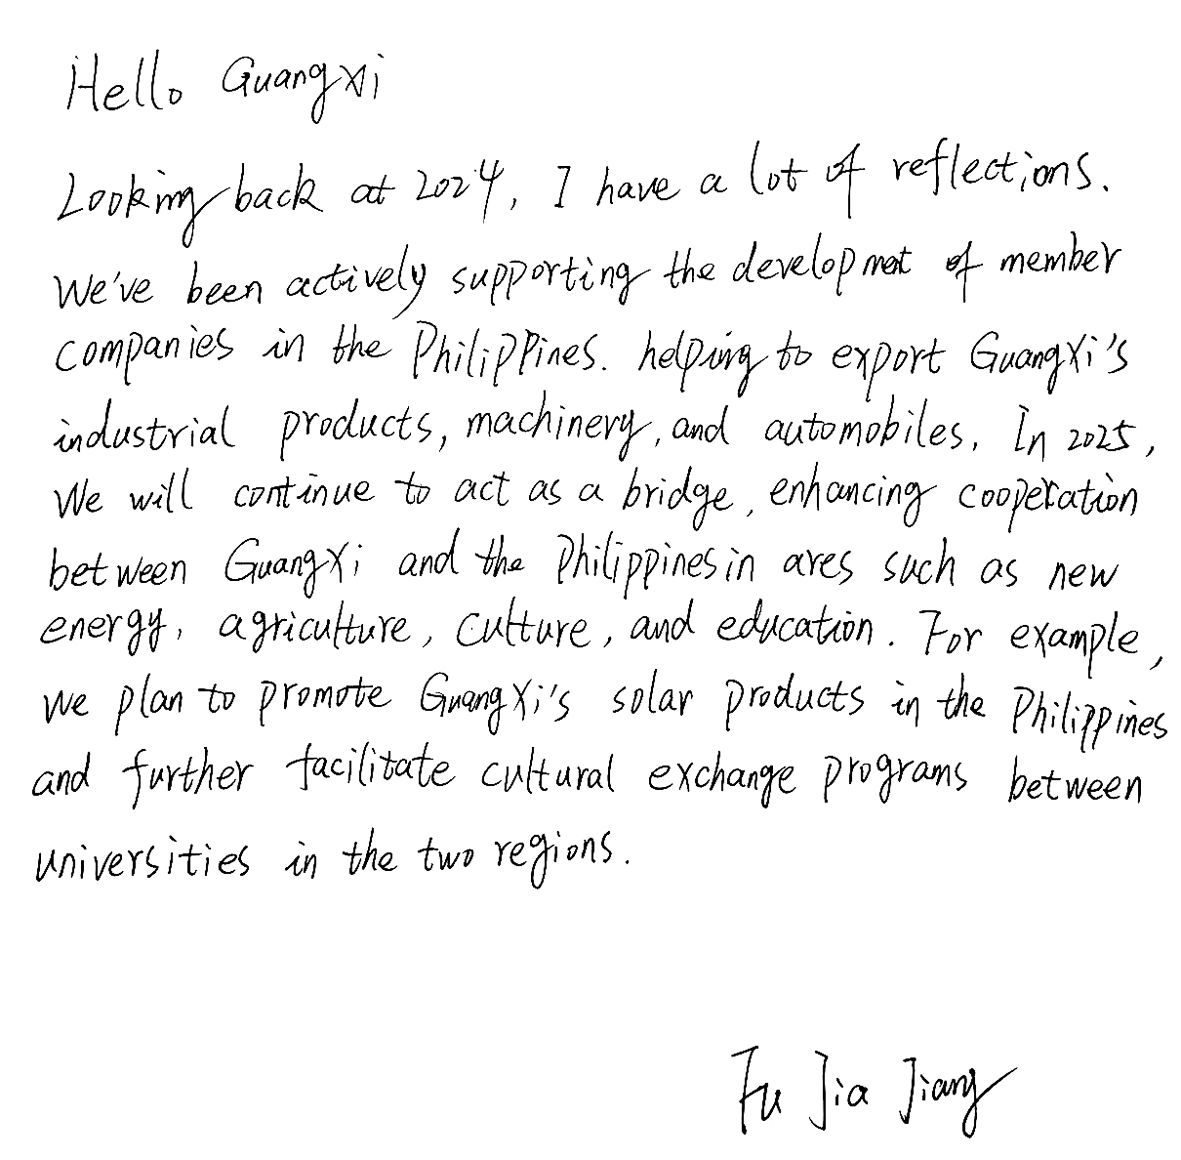 Hello Guangxi
Looking back at 2024, I have a lot of reflections.
We've been actively supporting the developmet of member
companies in the Philippines. helping to export Guangxi's
industrial products, machinery, and automobiles. In 2025,
We will continue to act as a bridge, enhancing cooperation
between Guangxi and the Philippines in ares such as new
energy, agriculture, culture, and education. For example,
we plan to promote Guangxi's solar products in the Philippines
and further facilitate cultural exchange programs between
universities in the two regions.
Fu Jia Jiang